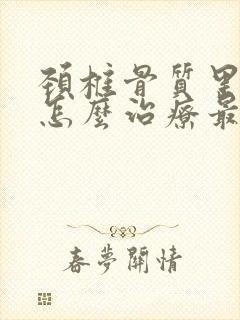 頚椎骨質
怎麼治療最
春夢關情